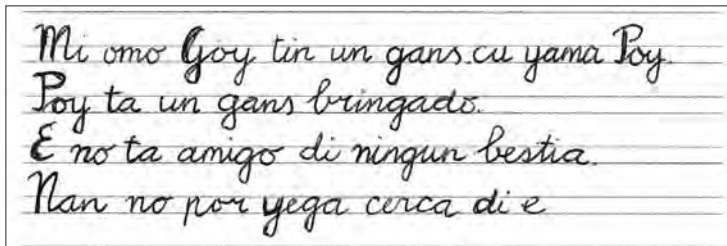 Mi omo Goy tin un gans cu yama Poy.
Poy ta un gans bringado.
E no ta amigo di ningun bestia.
Nan no por yega cerca di e